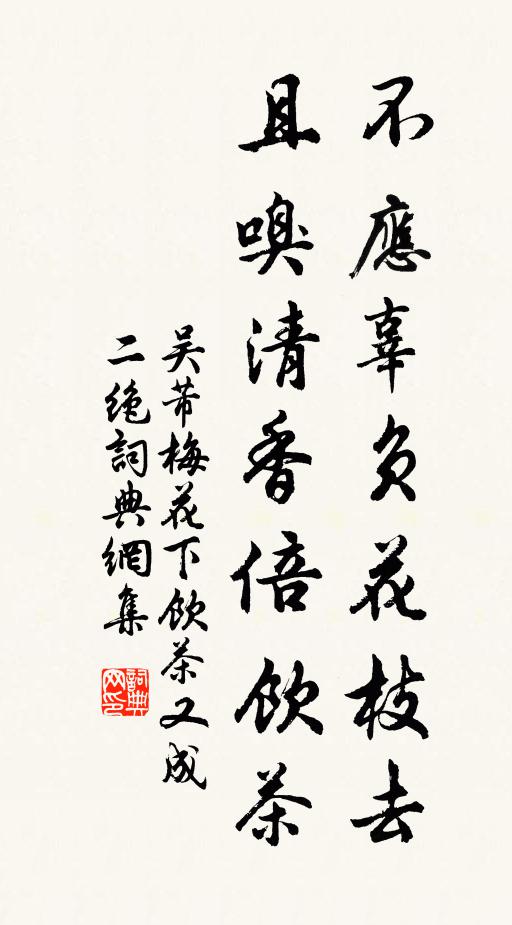 不應辜負花枝去
且嗅清香倍飲茶
吴芾梅花下飲茶又成
二絶詞典網集
詞典网印